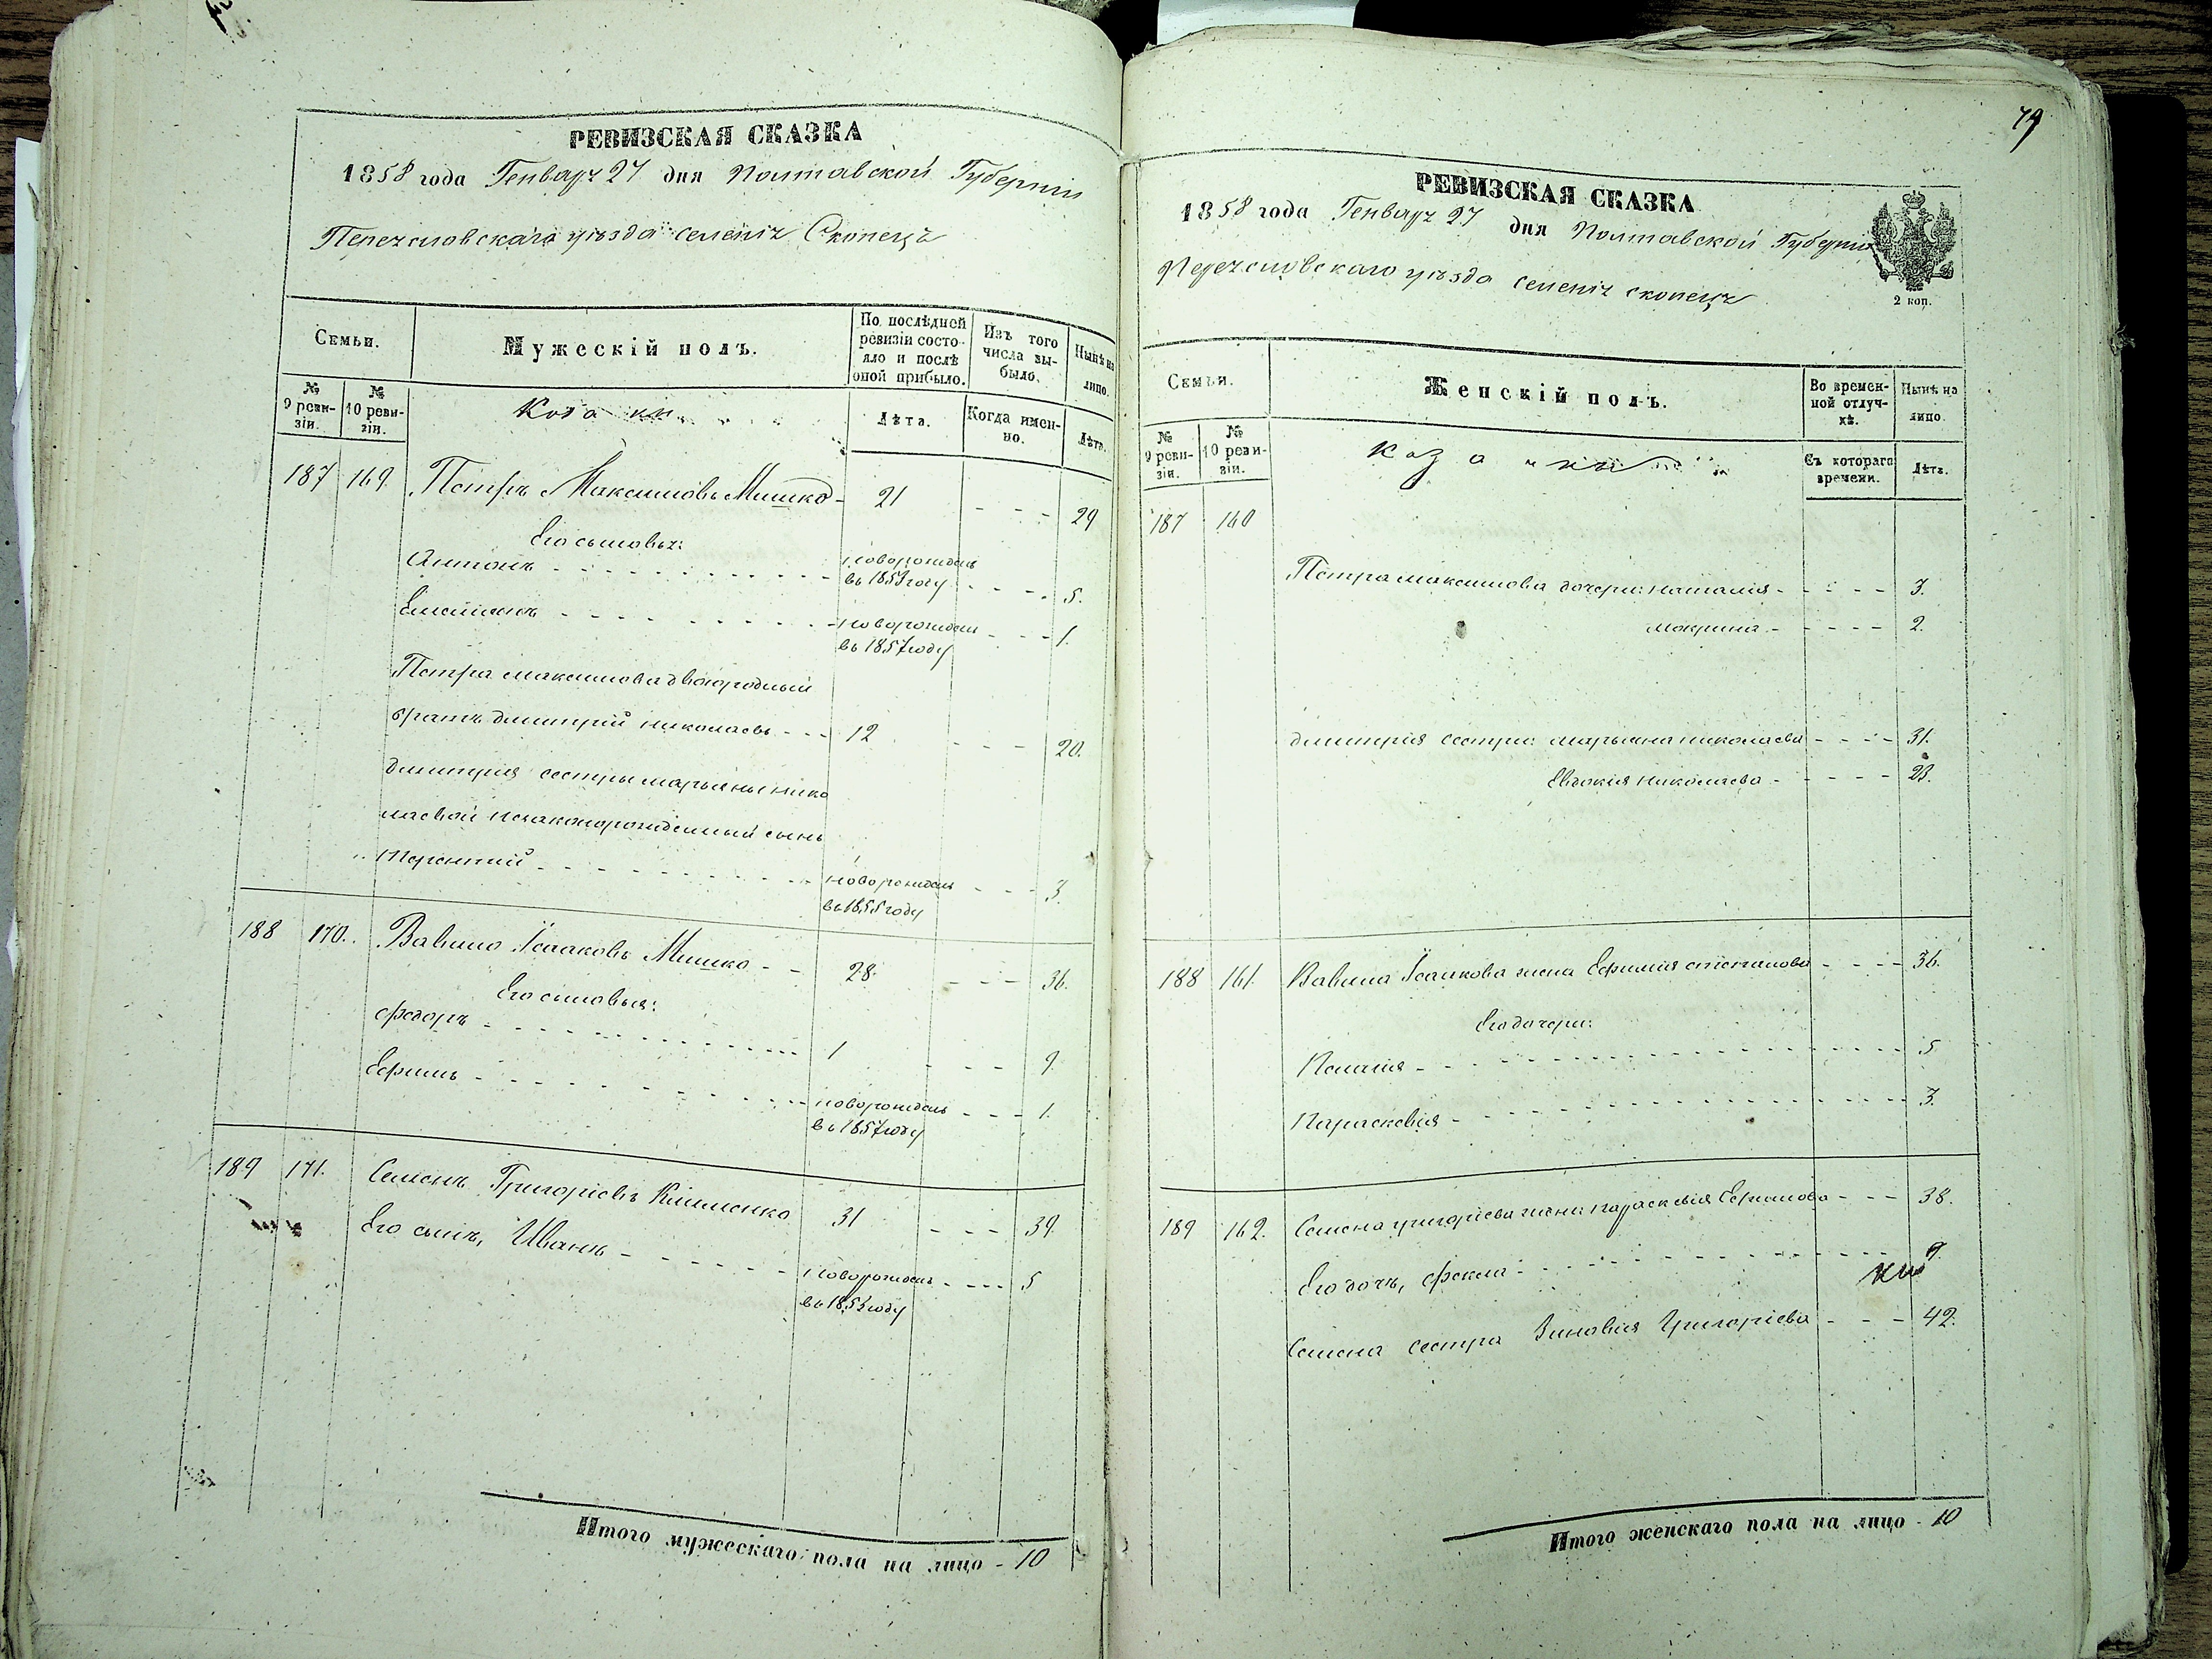 РЕВИЗСКАЯ СКАЗКА
1858 года Генваря 27 дня Полтавской Губерніи
Переяславскаго уѣзда селенія Скопецъ
Семьи.
Мужескій полъ.
По послѣдней ревизіи состояло и послѣ оной прибыло.
Изъ того числа выбыло.
Нынѣ на лицо.
№ 9 ревизіи.
№ 10 ревизіи.
Козаки
Лѣта.
Когда именно.
Лѣта.
187 169 Петръ Максимовъ Мишко - 21 - - - 29
Его сыновья:
Антонъ - - - новорожденъ въ 1853 году - - - 5.
Емеліянъ - - - новорожден въ 1857 году - - - 1.
Петра Максимова двоюродный
братъ Дмитрій Николаевъ - - - 12 - - - 20.
Дмитрія сестры Марьяны Нико
лаевой незаконорожденный сынъ
Терентий - - - новорожденъ въ 1855 году - - - 3.
188 170. Вавило Ісааковъ Мишко - - 28 - - - 36.
Его сыновья:
Федоръ - - - 1 - - - 9.
Ефимъ - - - новорожденъ въ 1857 году - - - 1.
189 171. Семенъ Григоріевъ Клименко 31 - - - 39.
Его сынъ, Иванъ - - - новорожденъ въ 1853 году - - - 5
Итого мужескаго пола на лицо - 10
79
РЕВИЗСКАЯ СКАЗКА
1858 года Генваря 27 дня Полтавской Губерніи
Переяславскаго уѣзда селенія Скопецъ
2 коп.
Семьи.
Женскій полъ.
Во временной отлучкѣ.
Нынѣ на лицо.
№ 9 ревизіи.
№ 10 ревизіи.
Съ котораго времени.
Лѣта.
187 160
Петра Максимова дочери: Наталія - - - 3.
Макрина - - - 2.
Дмитрія сестры: Марьяна Николаева - - - 31.
Евдокія Николаева - - - 23.
188 161. Вавила Ісаакова жена Ефимія Степанова - - - 36.
Его дочери:
Пелагія - - - 5
Парасковія - - - 3.
189 162. Семена Григоріева жена Парасковія Ефимова - - - 38.
Его дочь, Фекла - - - 9.
Семена сестра Зиновія Григоріева - - - 42.
Итого женскаго пола на лицо - 10